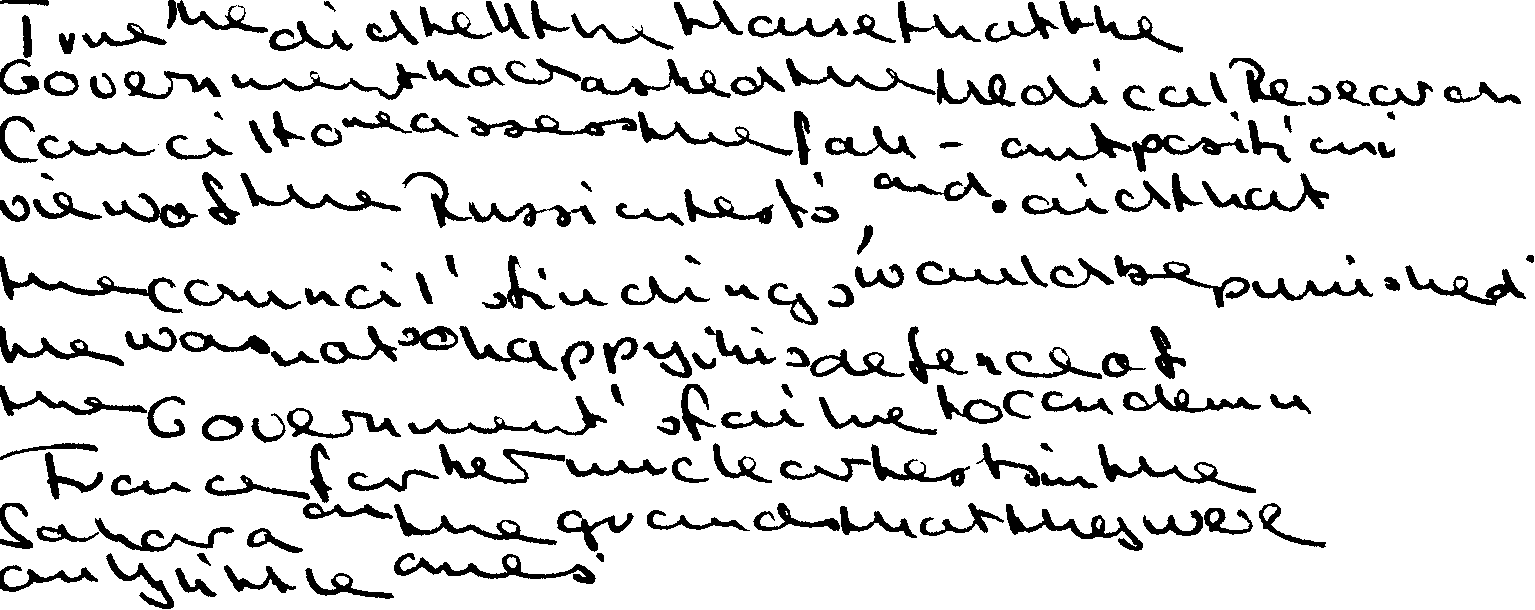 True he did tell the House that the
Government had asked the Medical Research
Council to reassess the fall - out position i
view of the Russian tests , and said that
the council's findings would be punished
he was not so happy i his defence of
the Government's failure to condemn
France for her nuclear tests in the
Sahara on the grounds that they were
only little ones